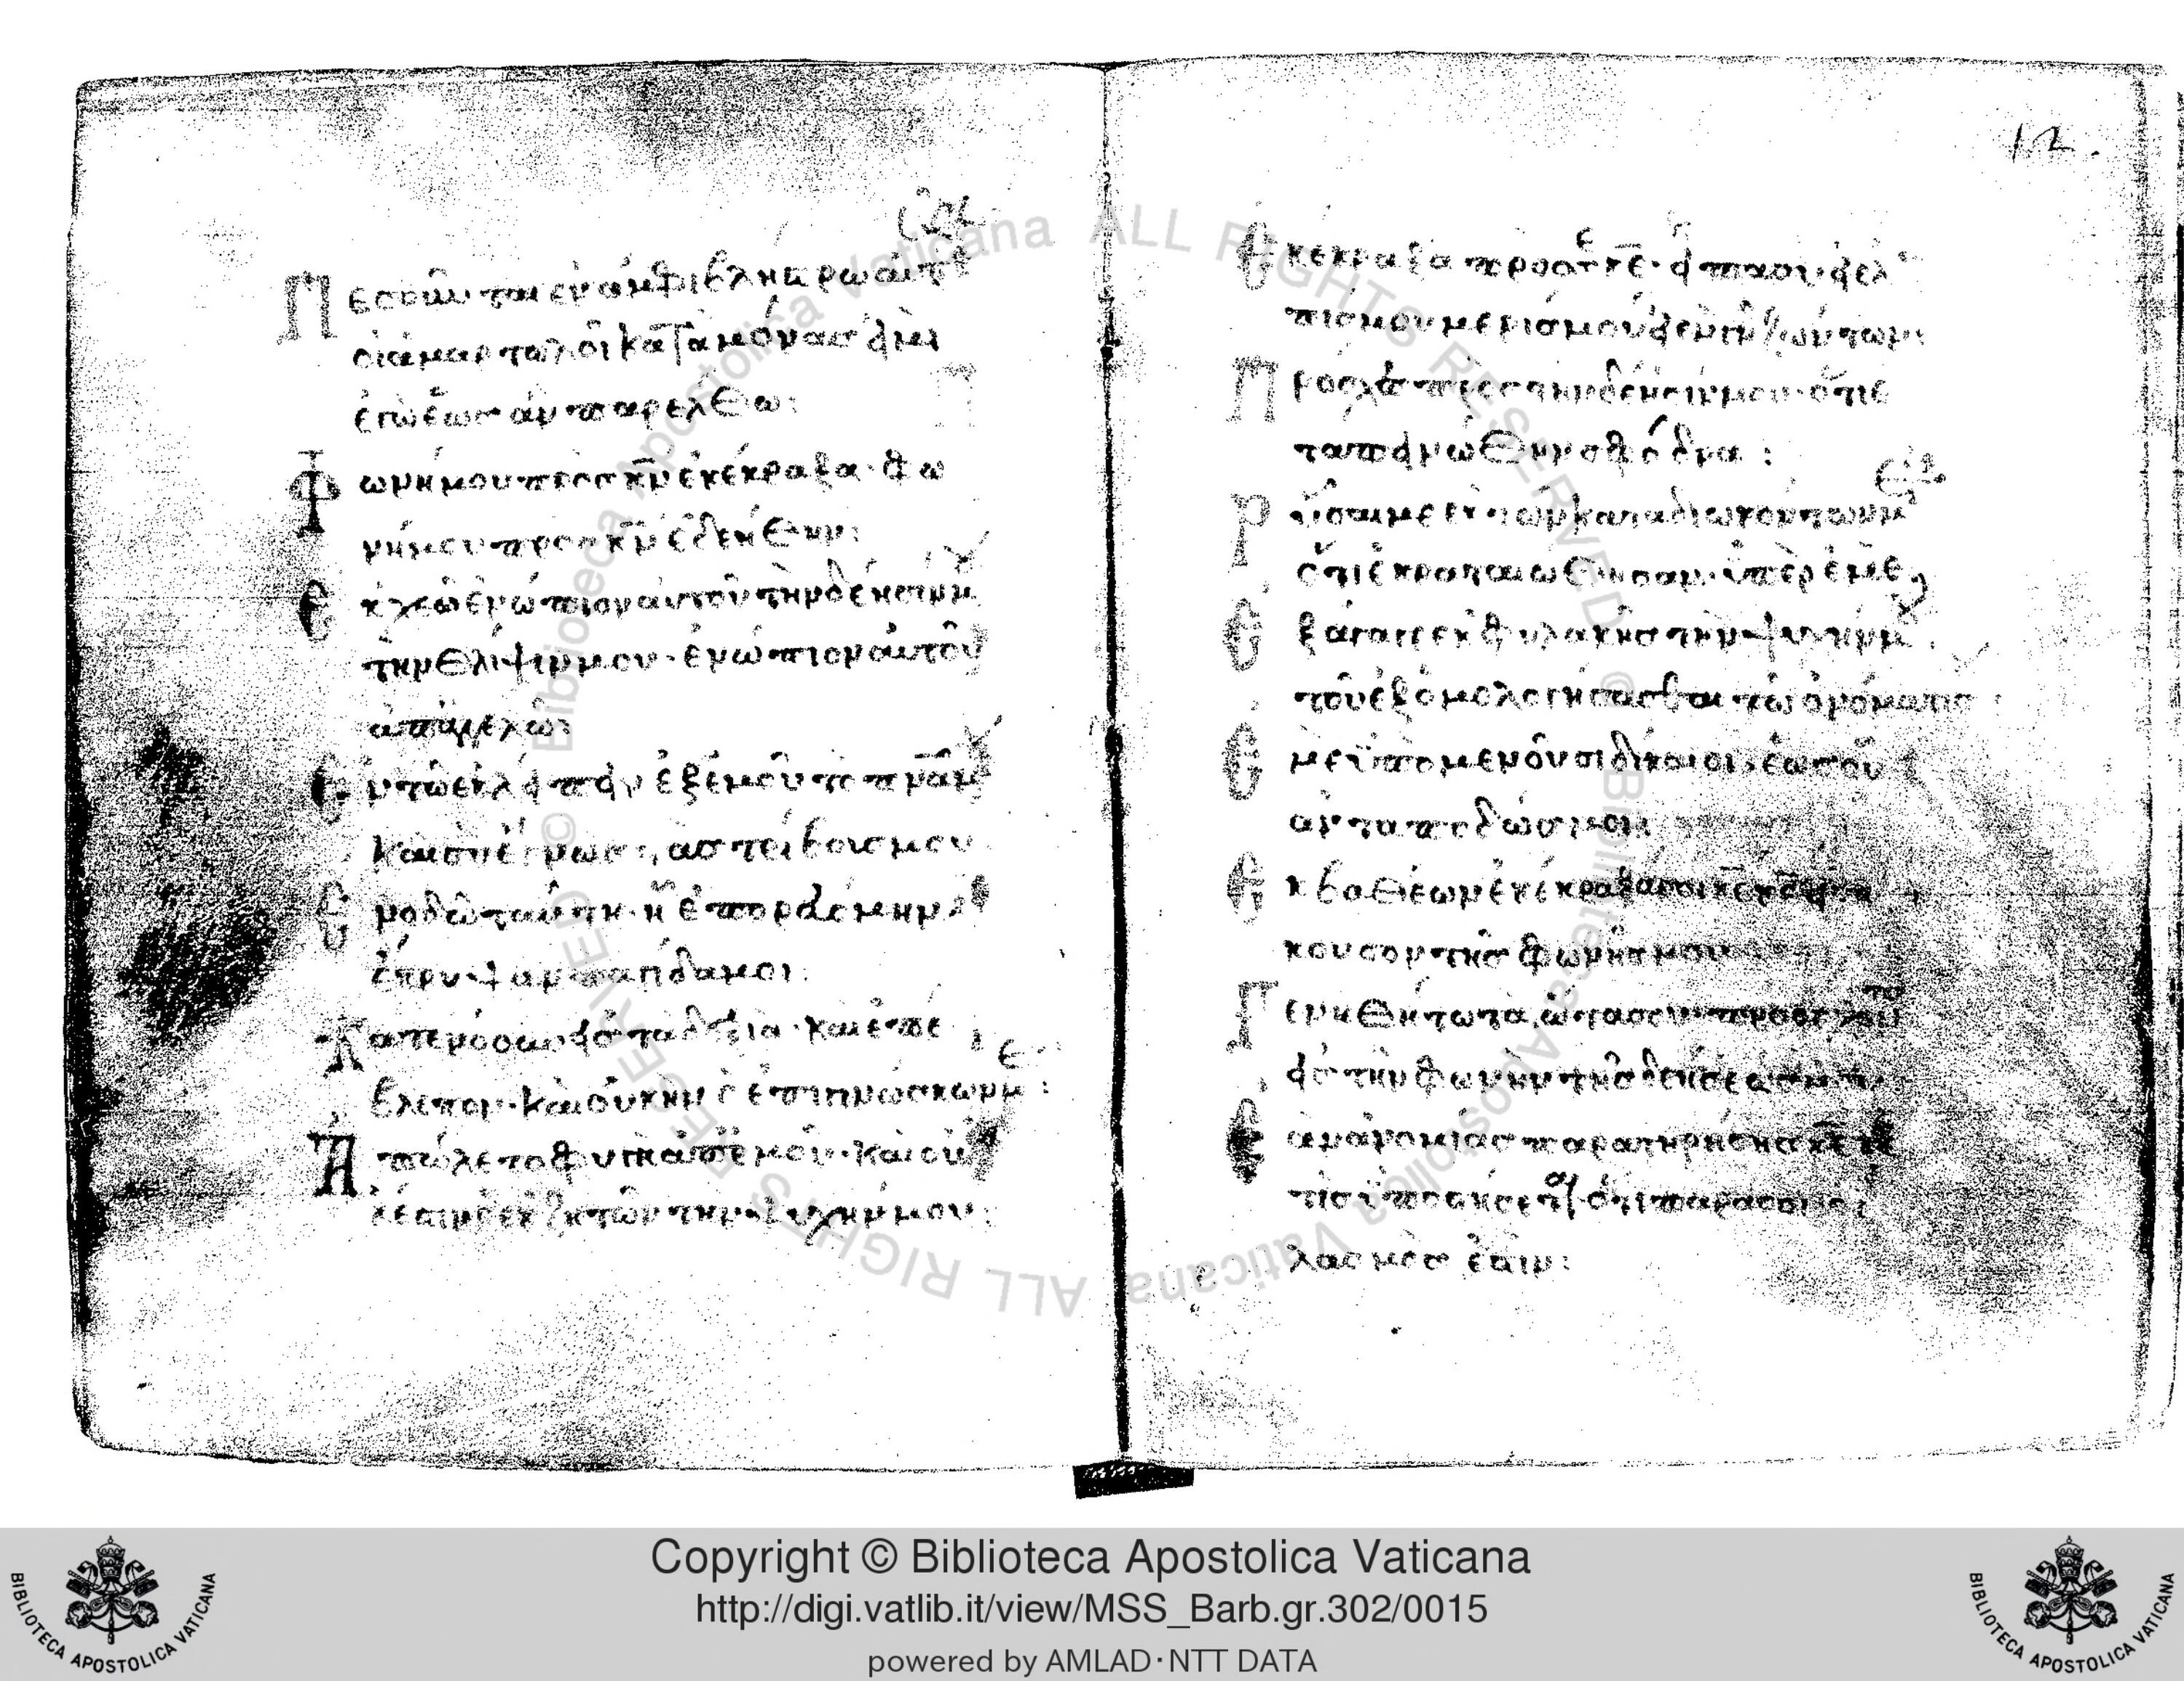 Πεσοῦνται ἐν ἀμφιβλήστρω αὐτοῦ
οἱ ἁμαρτωλοὶ κατὰ μόνας εἰμὶ
ἐγὼ ἕως ἂν παρέλθω:
Φωνή μου πρὸς κν ἐκέκραξα· φω
νή μου πρὸς κν ἐδεήθην:
Ἐκχεῶ ἐνώπιον αὐτοῦ τὴν δέησίν μ
τὴν θλίψιν μου· ἐνώπιον αὐτοῦ
ἀπαγγελῶ:
Ἐν τῶ ἐκλείπειν ἐξ ἐμοῦ τὸ πνα μ
καὶ σὺ ἔγνως τὰς τρίβους μου
Ἐν ὁδῶ ταύτη· ἧ ἐπορευόμην
ἔκρυψαν παγίδα μοι:
Κατενόουν εἰς τὰ δεξιὰ· καὶ ἐπέ
βλεπον· καὶ οὐκ ἦν ὁ ἐπιγινώσκων μ:
Ἀπώλετο φυγὴ ἀπ' ἐμοῦ· καὶ οὐ
κ ἔστιν ὁ ἐκζητῶν τὴν ψυχήν μου:
12.
Ἐκέκραξα πρὸς σὲ κε· εἶπα σὺ εἶ ἐλ
πίς μου μερίς μου εἶ ἐν γῆ ζώντων:
Πρόσχες πρὸς τὴν δέησίν μου· ὅτι ἐ
ταπεινώθην σφόδρα:
Ῥῦσαί με ἐκ τῶν καταδιωκόντων μ
ὅτι ἐκραταιώθησαν ὑπὲρ ἐμέ
Ἐξάγαγε ἐκ φυλακῆς τὴν ψυχήν μ
τοῦ ἐξομολογήσασθαι τῶ ὀνόματί σ
Ἐμὲ ὑπομενοῦσι δίκαιοι· ἕως οὗ
ἀνταποδῶς μοι:
Ἐκ βαθέων ἐκέκραξά σοι κε κε
κουσον τῆς φωνῆς μου
Γενηθήτω τὰ ὦτά σου προσέχοντα
εἰς τὴν φωνὴν τῆς δεήσεώς μου
Ἐὰν ἀνομίας παρατηρήσης κε κε
τίς ὑποστήσεται· ὅτι παρὰ σοὶ ὁ ἱ
λασμός ἐστιν:
Copyright © Biblioteca Apostolica Vaticana
http://digi.vatlib.it/view/MSS_Barb.gr.302/0015
powered by AMLAD·NTT DATA
BIBLIOTECA APOSTOLICA VATICANA
BIBLIOTECA APOSTOLICA VATICANA